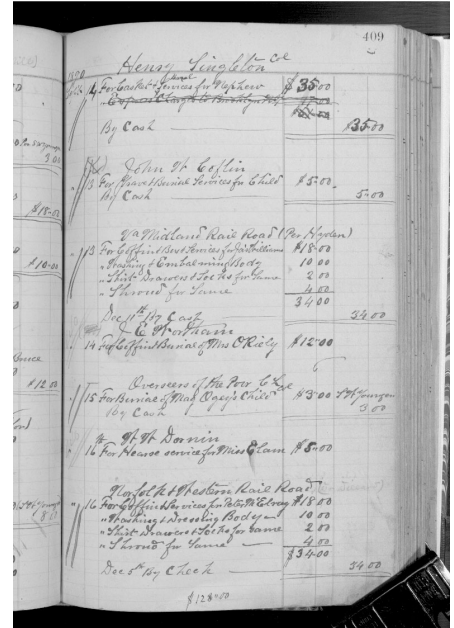 409
Henry Singleton Col
1890
14 For Casket & Services for Nephew $35 00
By Cash $35 00
John W Coflin
13 For Grave & Burial Services for Child $5 00
By Cash 5 00
Va Midland Rail Road (Per Hyden)
13 For Coffin & Box & Services for $18 00
" Washing & Embalming Body 10 00
" Shirt Drawers & Socks for Same 2 00
" Shroud for Same 4 00
34 00
Dec 11th By Cash 34 00
J E Wortham
14 For Coffin & Burial of Mrs O Riely $12 00
Overseers of the Poor
15 For Burial of Child $3 00
By Cash 3 00
W W Dornin
16 For Hearse service for Miss Elam $5 00
Norfolk & Western Rail Road
16 For Coffin & Services for Peter McElroy $18 00
" Washing & Dressing Body 10 00
" Shirt Drawers & Socks for Same 2 00
" Shroud for Same 4 00
$34 00
Dec 5th By Check 34 00
$128 00
3 00
$18 00
$10 00
$12 00